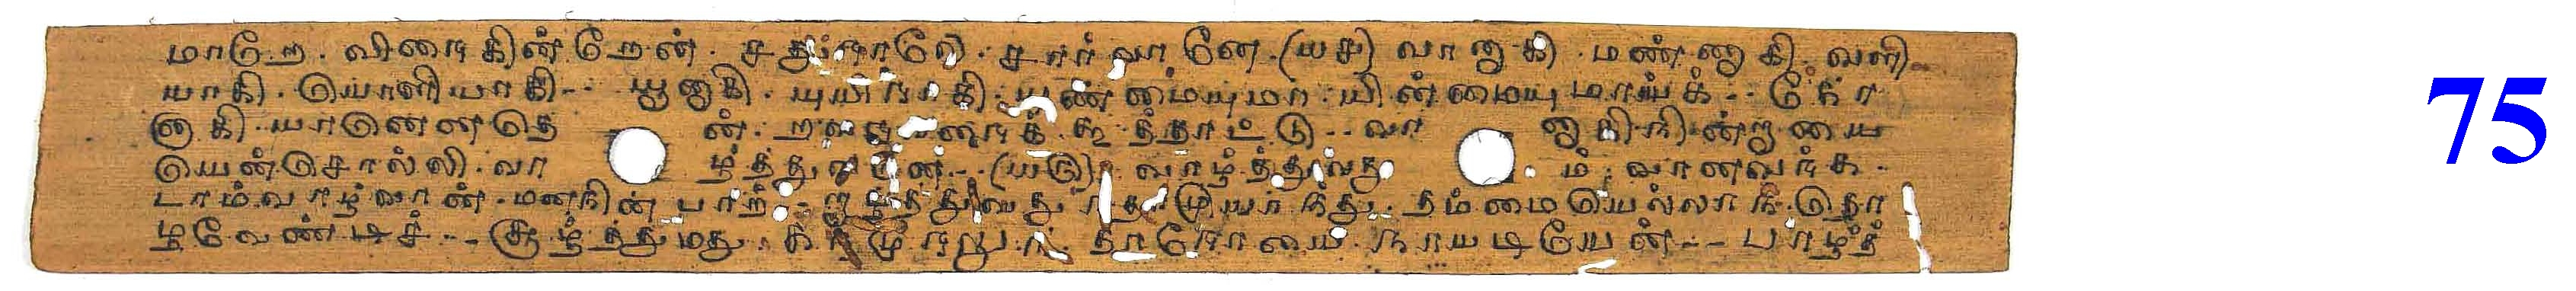 மாடேற . விடைகின்றேன் . சதுராலே . சார்வானே . (யச) வானாகி . மண்ணாகி . வளி
யாகி . யொளியாகி - - யூனாகி . யுயிராகி . யுண்மையுமா . யின்மையுமாய்க் - - கோ
னாகி . யானெனதெ ன் . றவரவரைக் . கூத்தாட்டு - - வா னாகி . நின்றயை
யென்சொல்லி . வா ழ்த்துவனே - - (யரு) வாழ்த்துவது ம் . வானவர்க .
டாம்வாழ்வான் . மனநின்பாற் - - றாழ்த்துவது . ந்தாமுயர்ந்து . தம்மையெல்லாந் . தொ
ழவேண்டிச் - - சூழ்த்துமது . கரமுரலுந் . தாரோயை . நாயடியேன் - - பாழ்த்